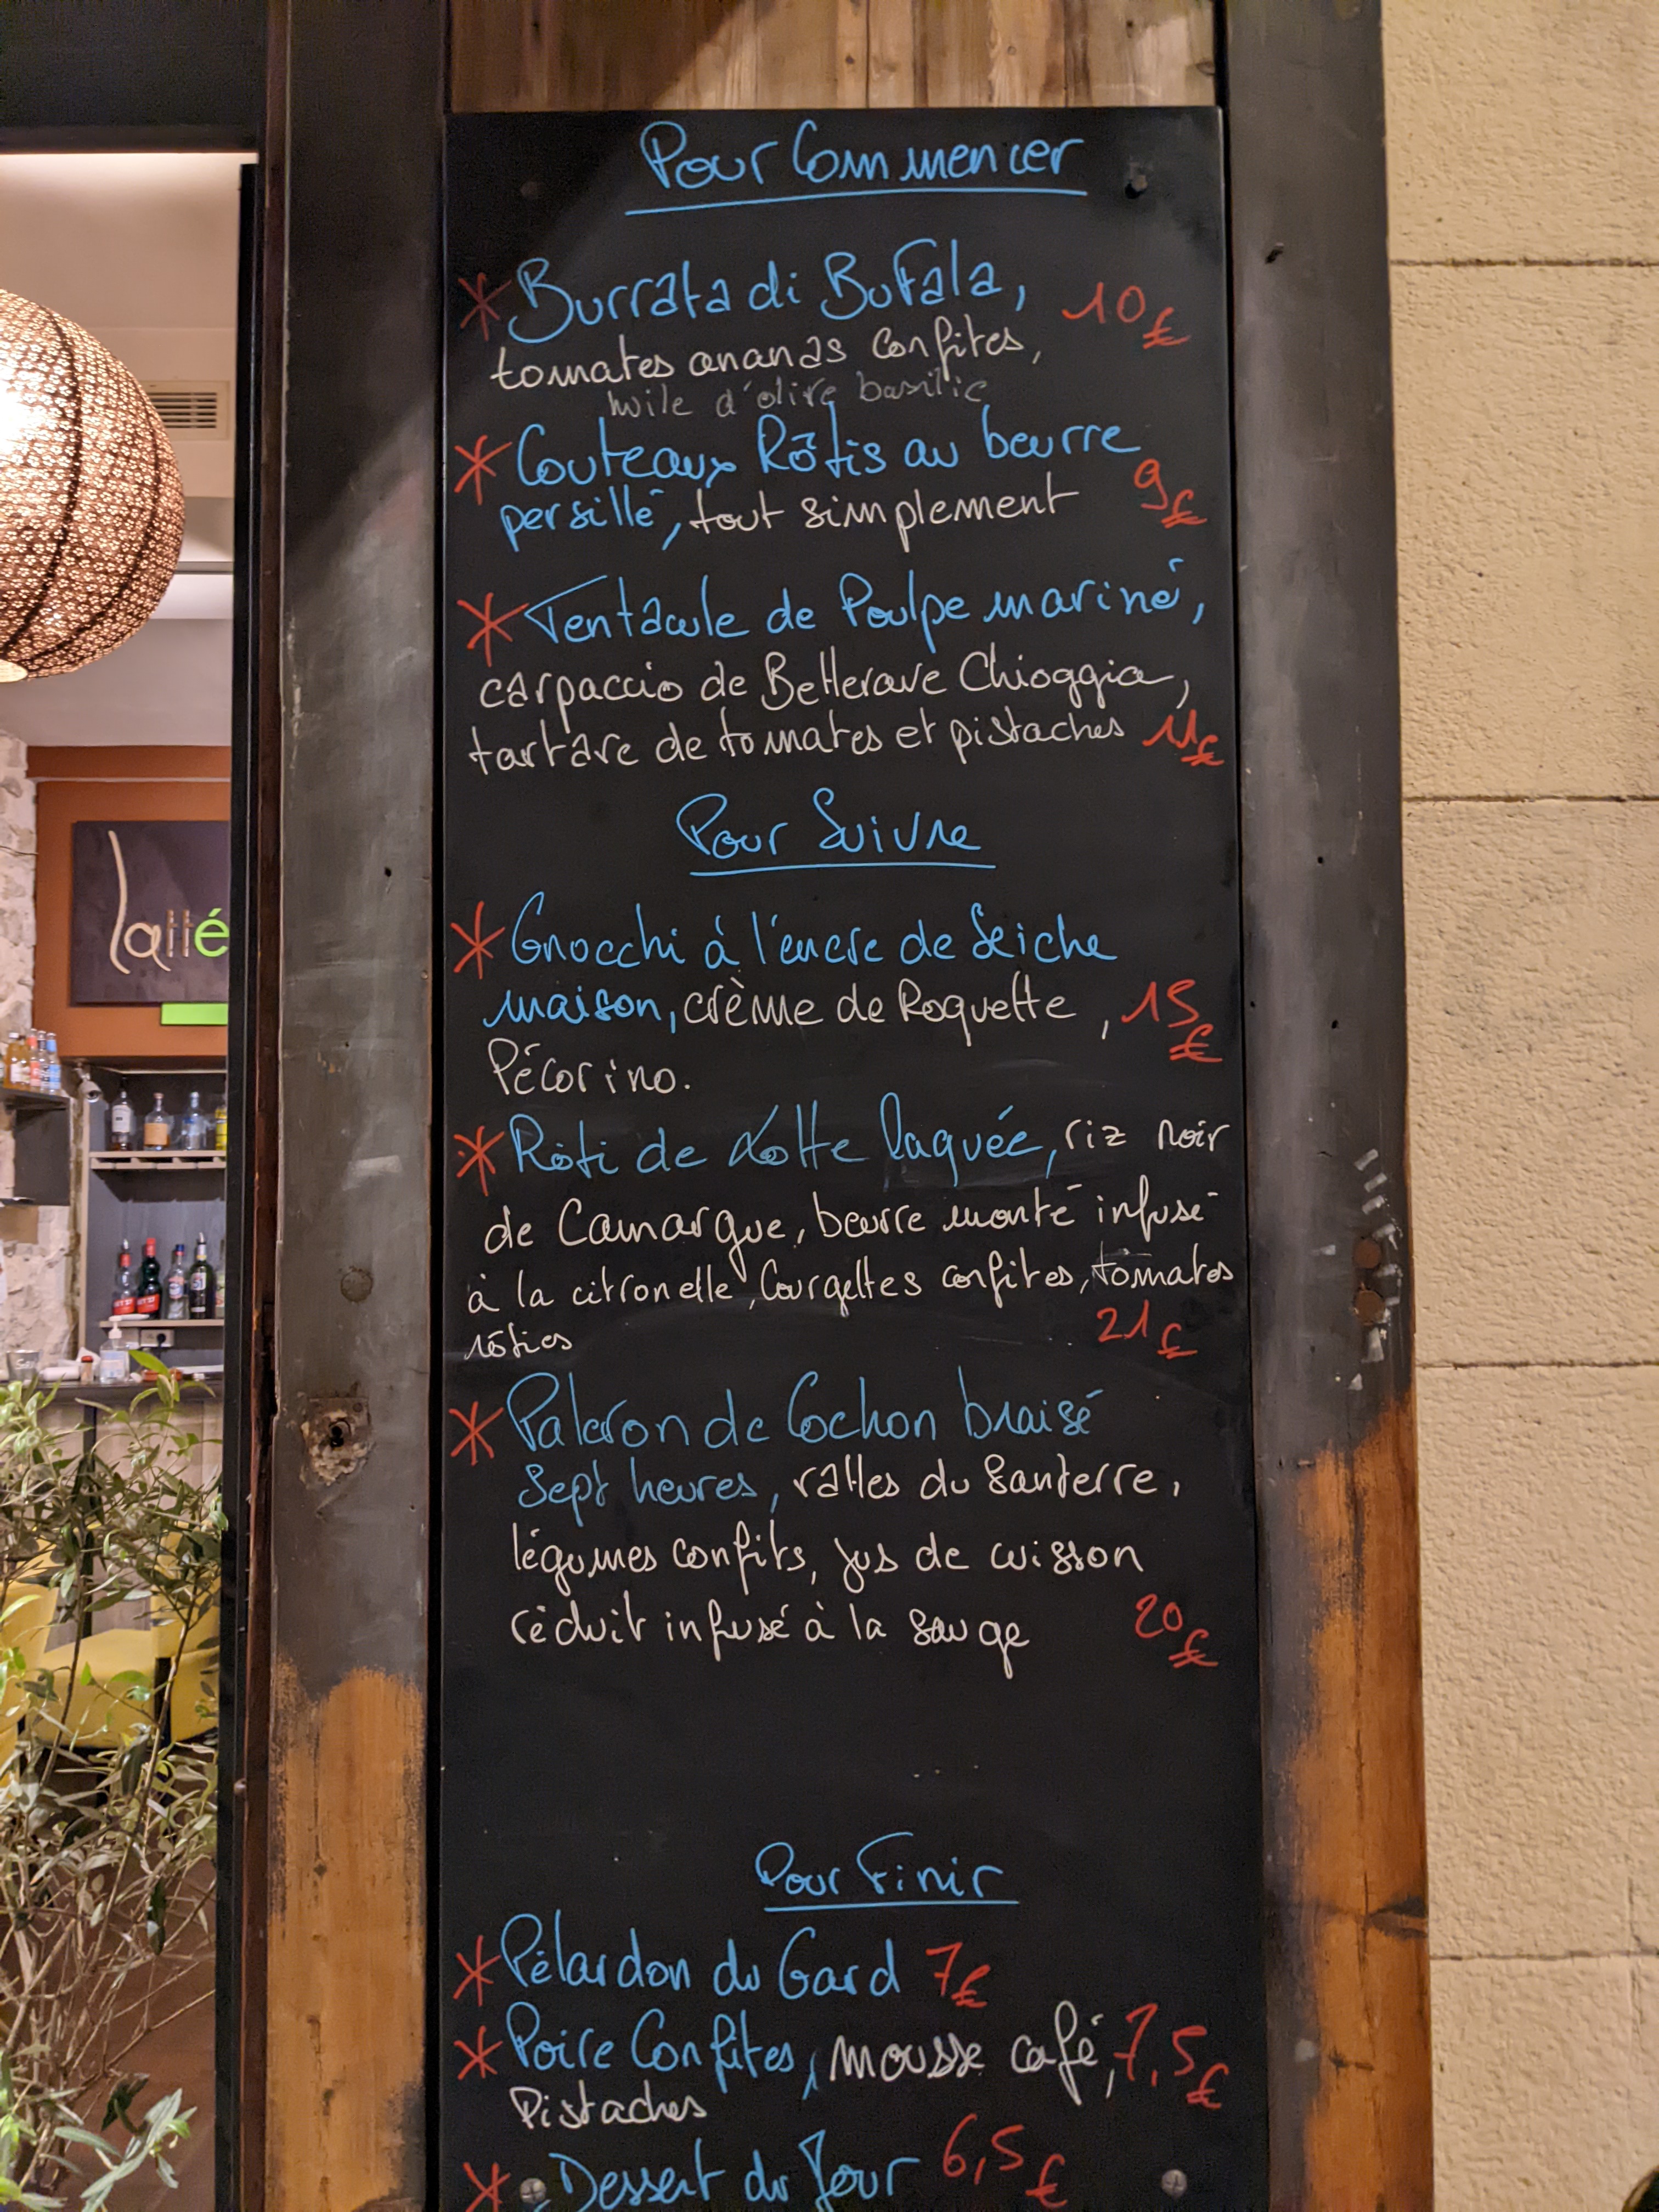 Pour Commencer
* Burrata di Bufala, 10€
tomates ananas confites,
huile d'olive basilic
* Couteaux Rôtis au beurre
persillé, tout simplement 9€
* Tentacule de Poulpe mariné,
carpaccio de Betterave Chioggia,
tartare de tomates et pistaches 11€
Pour Suivre
* Gnocchi à l'encre de Seiche
maison, crème de Roquette, 15€
Pécorino.
* Rôti de Lotte laquée, riz noir
de Camargue, beurre monté infusé
à la citronelle, Courgettes confites, tomates
rôties 21€
* Paleron de Cochon braisé
Sept heures, rattes du Santerre,
légumes confits, jus de cuisson
réduit infusé à la sauge 20€
Pour Finir
* Pélardon du Gard 7€
* Poire Confites, mousse café, 7,5€
Pistaches
* Dessert du Jour 6,5€